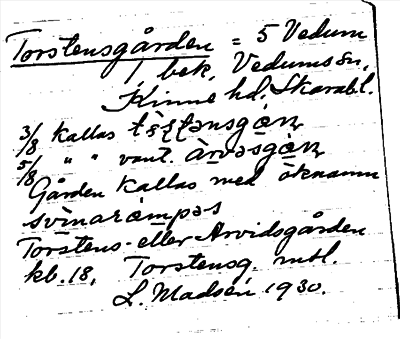 Torstensgården = 5 Vedum
1, bek, Vedums sn,
Kinne hd. Skarab.l.
3/8 kallas
5/8 " " vant. årvasgån
Gården kallas med öknamn
svinarämpas
Torstens- eller Arvidsgården
kb. 18, Torstensg. mtl.
L. Madsén 1930.